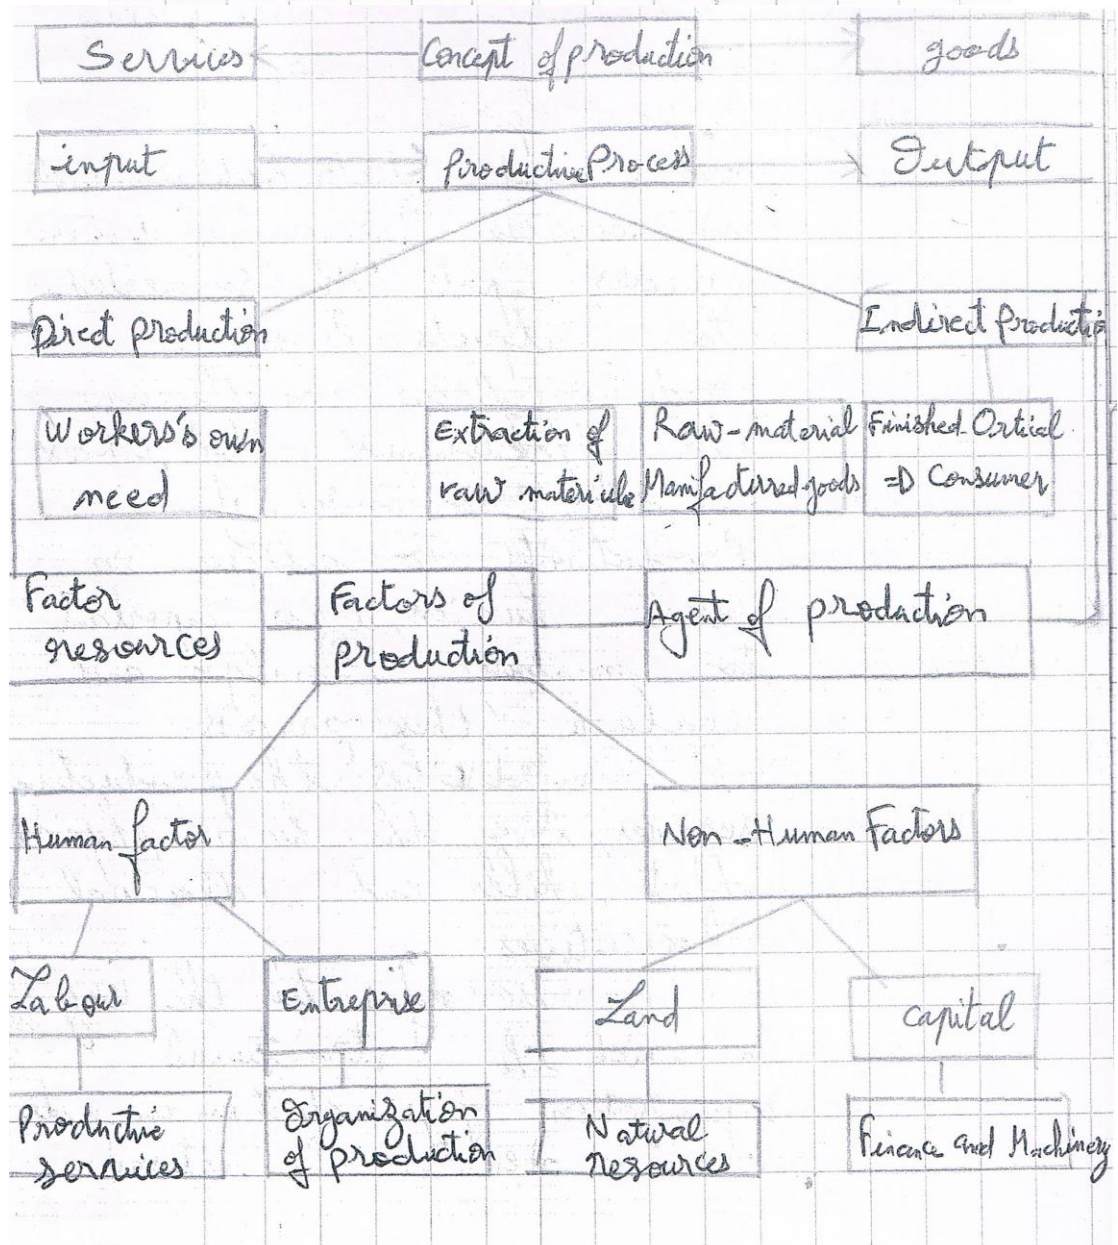 Services
Concept of production
goods
input
Productive Process
Output
Direct production
Indirect Production
Workers's own
need
Extraction of
raw materials
Raw-material
Manifacturred goods
Finished Ortical
=D Consumer
Factor
resources
Factors of
production
Agent of production
Human factor
Non-Human Factors
Labour
Entreprise
Land
capital
Productive
services
Organization
of production
Natural
resources
Finance and Machinery